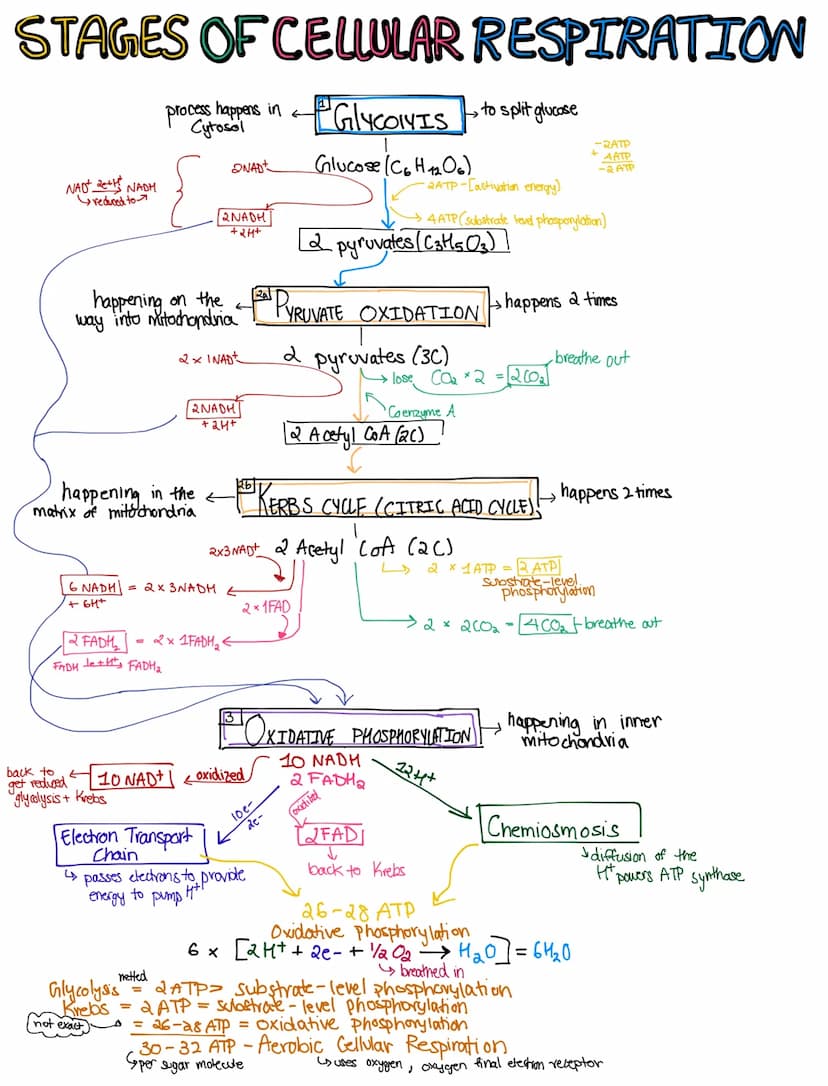 STAGES OF CELLULAR RESPIRATION
process happens in Cytosol
1
GLYCOLYIS
to split glucose
Glucose (C6H12O6)
-2ATP
+ 4ATP
-2ATP
2NAD+
NAD+ 2e+H+ NADH
reduced to
2ATP-[activation energy]
4ATP (substrate level phosporylation)
2NADH
+ 2H+
2 pyruvates (C3H5O3)
happening on the
way into mitochondria
2a
PYRUVATE OXIDATION
happens 2 times
2 x 1NAD+
2 pyruvates (3C)
lose CO2 × 2 = 2CO2
breathe out
2NADH
+ 2H+
Coenzyme A
2 Acetyl CoA (2C)
happening in the
matrix of mitochondria
2b
KERBS CYCLE (CITRIC ACID CYCLE)
happens 2 times
2x3NAD+
2 Acetyl CoA (2C)
2 × 1ATP = 2 ATP
substrate-level
phosphorylation
6 NADH = 2 x 3NADH
+ 6H+
2 x 1FAD
2 x 2CO2 = 4CO2 - breathe out
2 FADH2 = 2 x 1FADH2
FADH 1e+H+ FADH2
3
OXIDATIVE PHOSPHORYLATION
happening in inner
mitochondria
10 NADH
2 FADH2
back to
get reduced
glycolysis + Krebs
10 NAD+
oxidized
12H+
10e-
2e-
oxidized
2FAD
back to Krebs
Electron Transport
Chain
passes electrons to provide
energy to pump H+
Chemiosmosis
diffusion of the
H+ powers ATP synthase
26-28 ATP
Oxidative Phosphorylation
6 x [2H+ + 2e- + 1/2 O2 → H2O] = 6H2O
breathed in
netted
Glycolysis = 2ATP= substrate-level phosphorylation
Krebs = 2 ATP = substrate-level phosphorylation
not exact = 26-28 ATP = oxidative phosphorylation
30-32 ATP - Aerobic Cellular Respiration
per sugar molecule
uses oxygen, oxygen final electron receptor